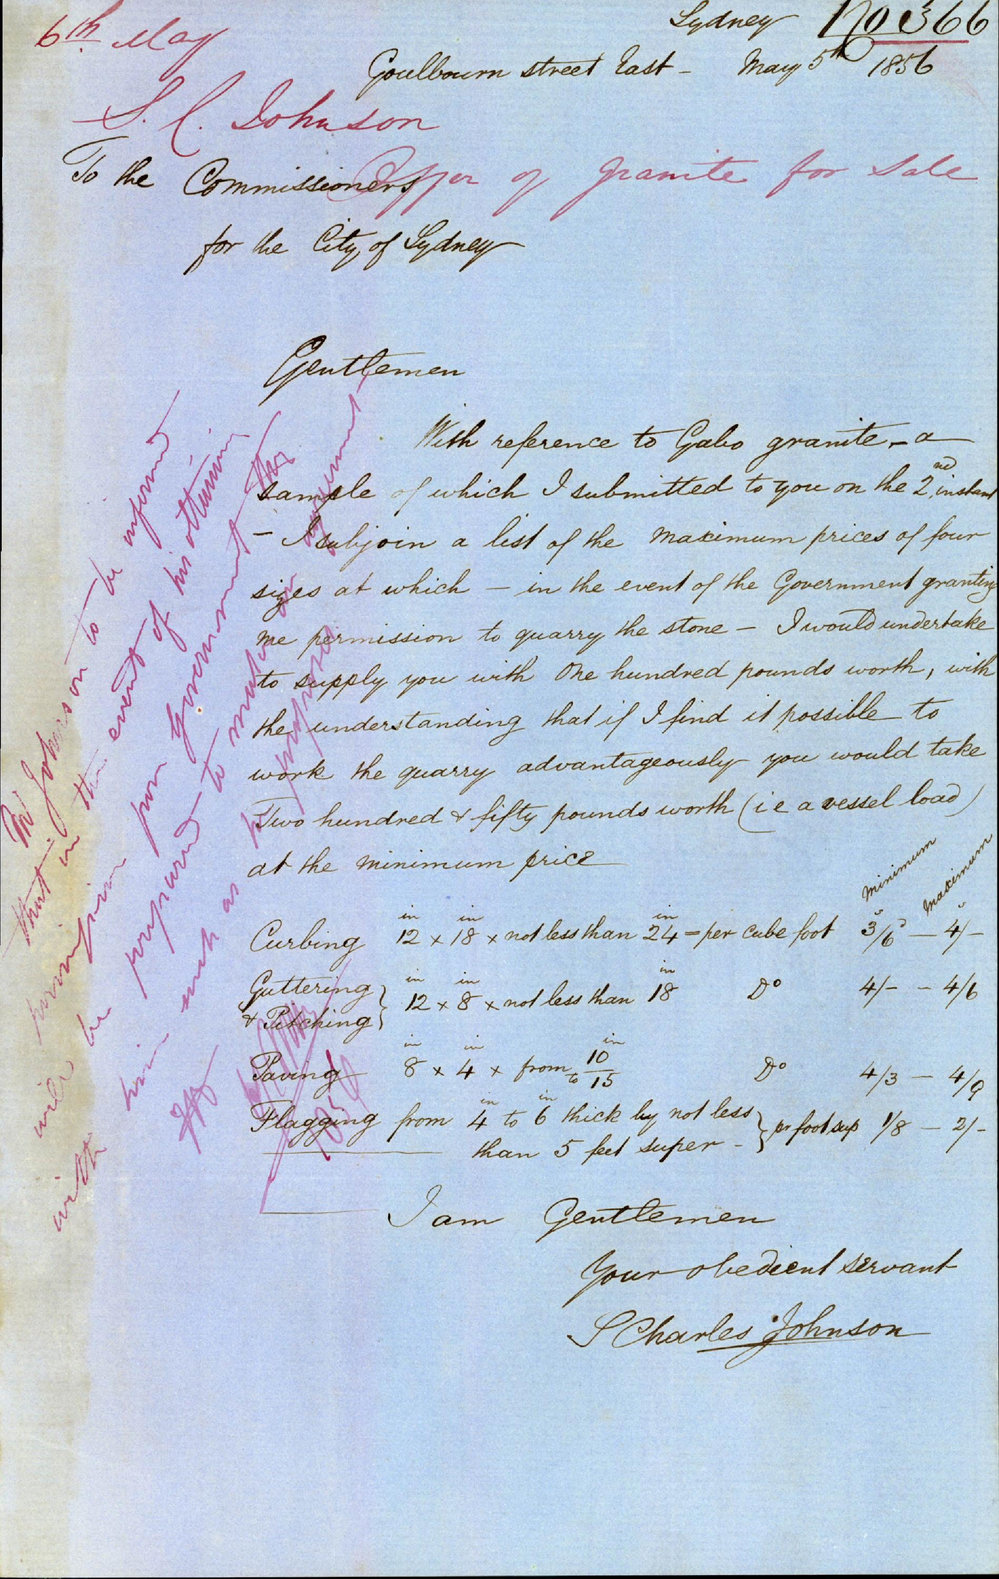 6th May
Sydney No 366
Goulbourn street East - May 5th 1856
S. C. Johnson
Offer of granite for sale
To the Commissioners
for the City of Sydney
Gentlemen
With reference to Gabo granite - a
sample of which I submitted to you on the 2nd instant
- I subjoin a list of the maximum prices of four
sizes at which - in the event of the Government granting
me permission to quarry the stone - I would undertake
to supply you with One hundred pounds worth, with
the understanding that if I find it possible to
work the quarry advantageously you would take
Two hundred & fifty pounds worth (i e a vessel load)
at the minimum price
Minimum Maximum
Curbing 12 in x 18 in x not less than 24 in = per cube foot 3s/6d - 4s/-
Guttering & Pitching } 12 in x 8 in x not less than 18 in Do 4/- - 4/6
Paving 8 in x 4 in x from 10 in to 15 Do 4/3 - 4/9
Flagging from 4 in to 6 in thick by not less
than 5 feet super - } pr foot sup 1/8 - 2/-
I am Gentlemen
Your obedient servant
S Charles Johnson
Mr Johnson to be informed
that in the event of his obtaining
permission from Government the
will be prepared to make an agreement
with him such as is proposed